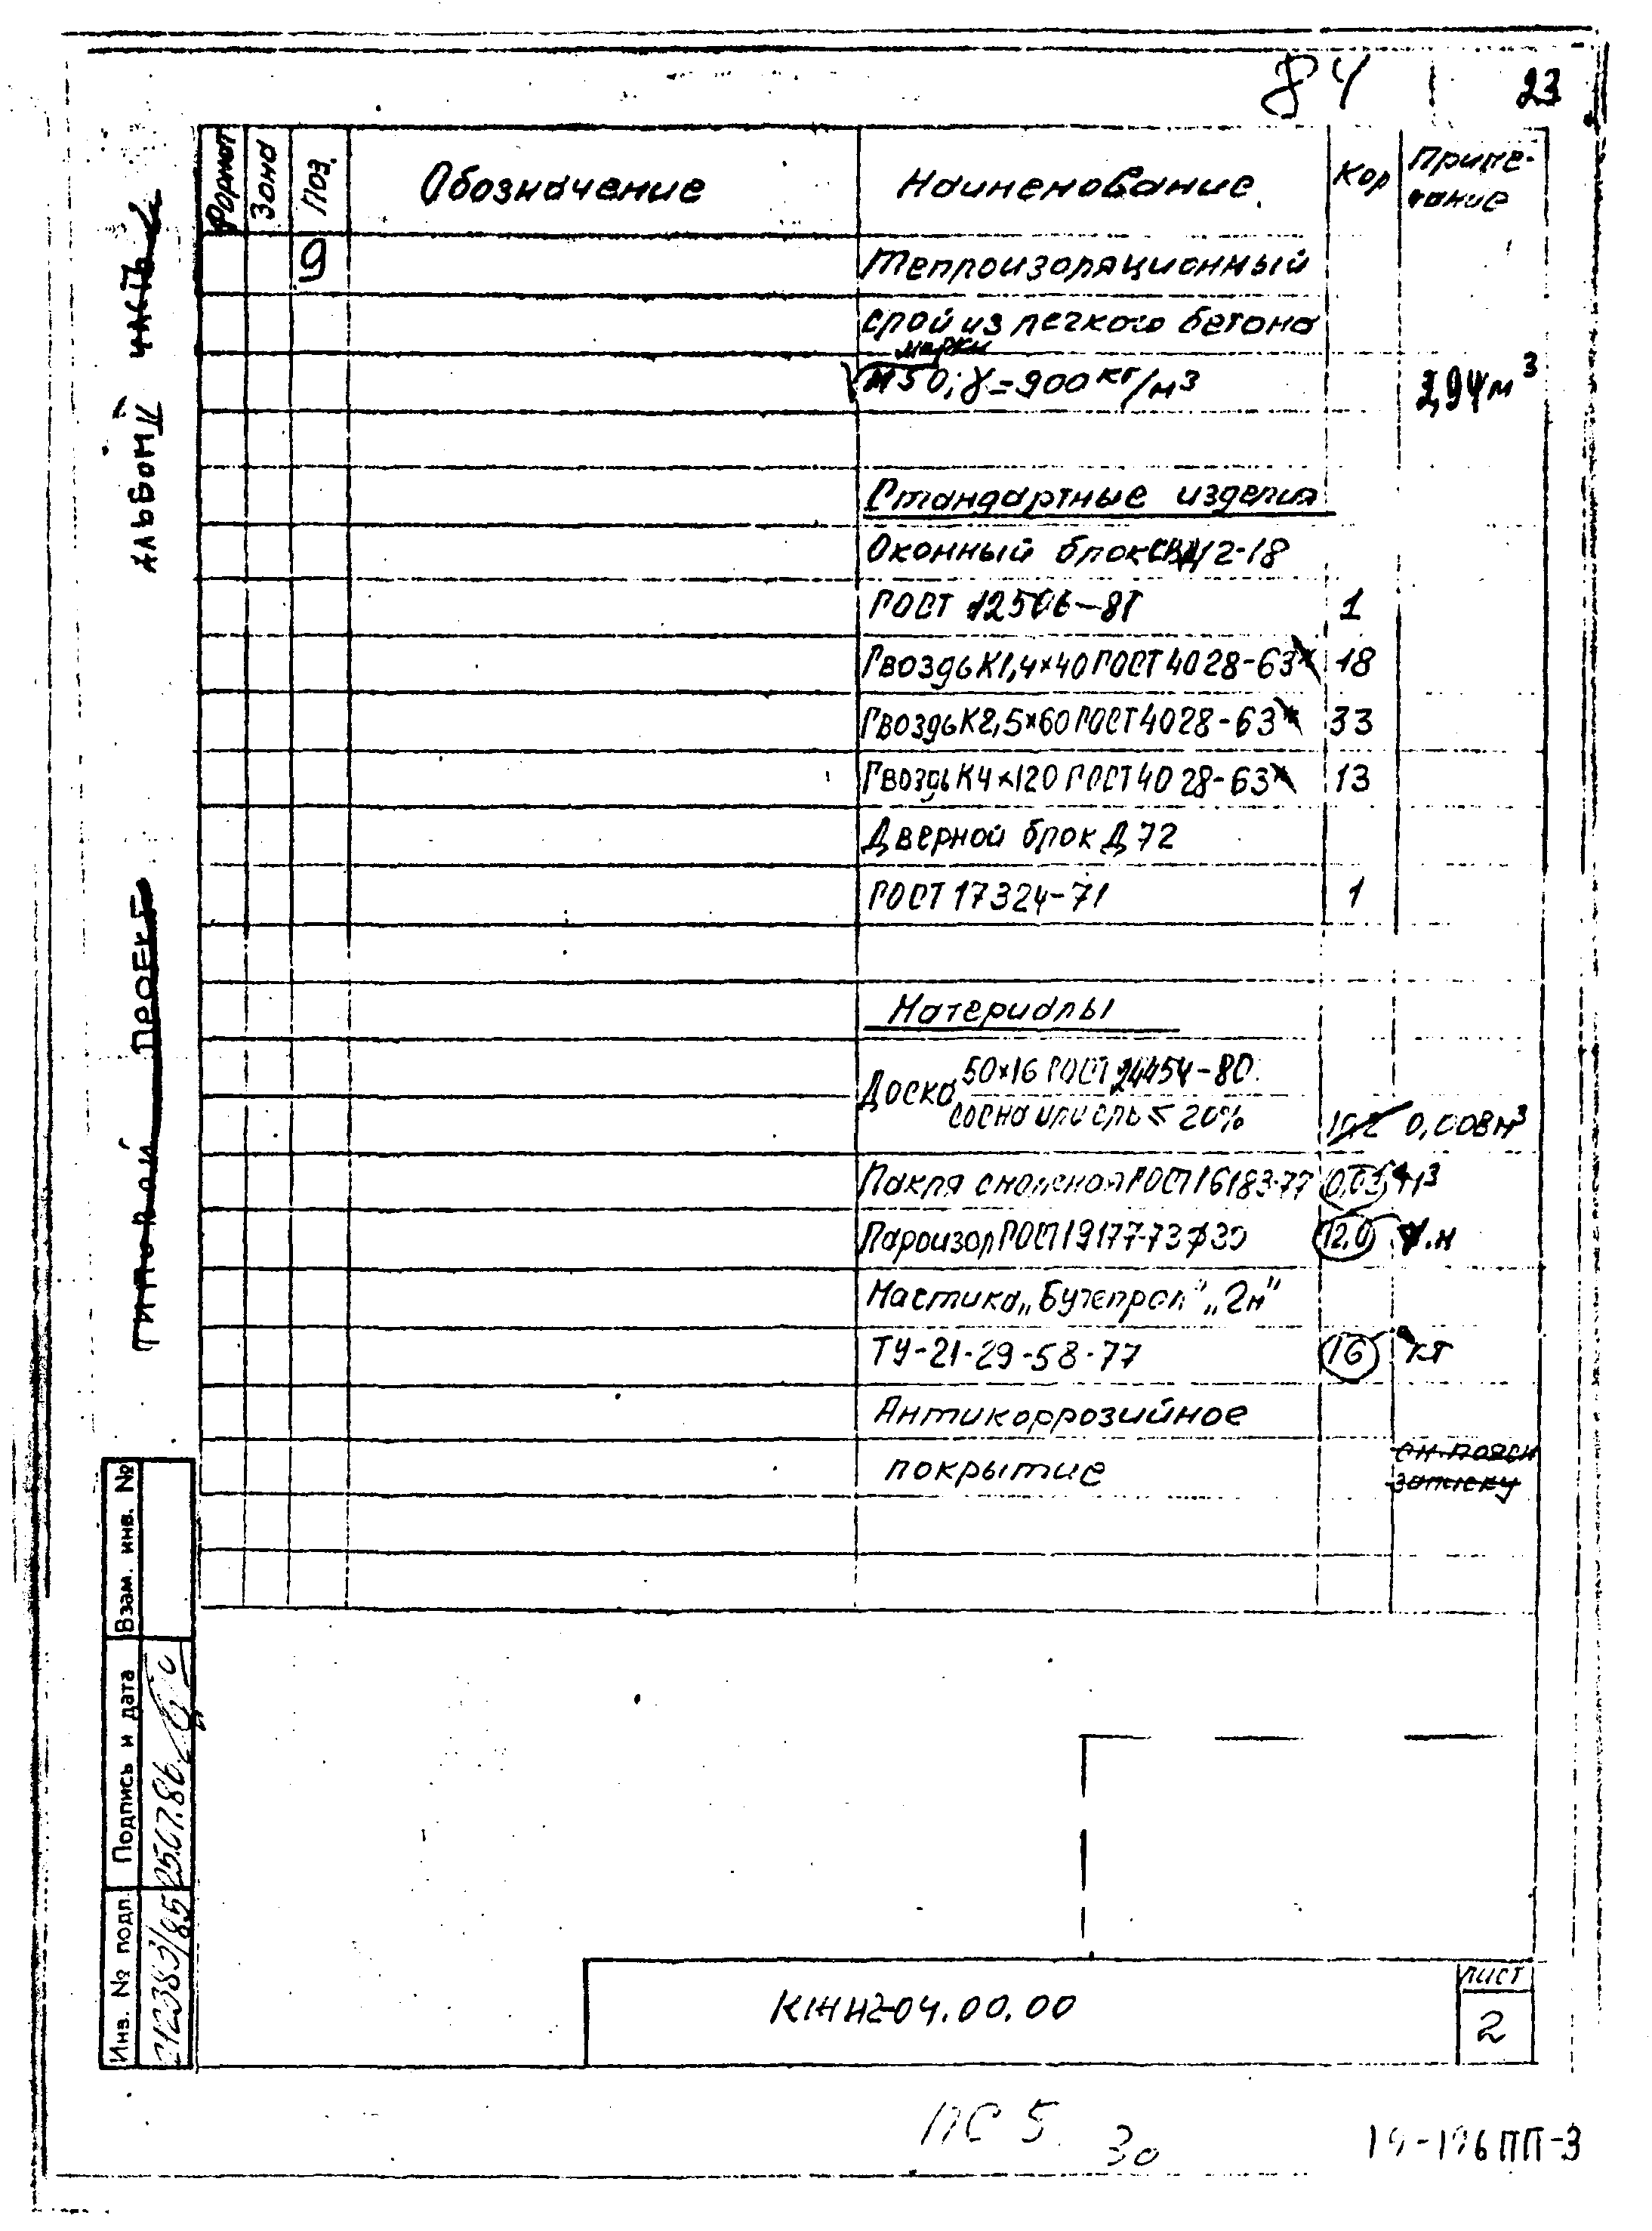 84
23
Формат Зона Поз. Обозначение Наименование Кол Приме-
чание
9 Теплоизоляционный
слой из легкого бетона
марки
М50; γ=900кг/м3 2,94м3
Стандартные изделия
Оконный блок 12-18
ГОСТ 12506-81 1
Гвоздь К1,4×40 ГОСТ 4028-63* 18
Гвоздь К2,5×60 ГОСТ 4028-63* 33
Гвоздь К4×120 ГОСТ 4028-63* 13
Дверной блок Д72
ГОСТ 17324-71 1
Материалы
Доска 50×16 ГОСТ 24454-80
сосна или ель ≤ 20% 0,008м3
Пакля смоленая ГОСТ 16183-77 0,03 м3
Пароизол ГОСТ 19177-73 ф30 12,0 п.м
Мастика „Бутепрол" „2м"
ТУ-21-29-58-77 16 кг
Антикоррозийное
покрытие см. поясн
записку
Альбом II часть 2
Типовой проект
Взам. инв. №
Подпись и дата 25.07.86
Инв. № подл.
КЖИ2-04.00.00
лист
2
ПС 5
30
ПП-3